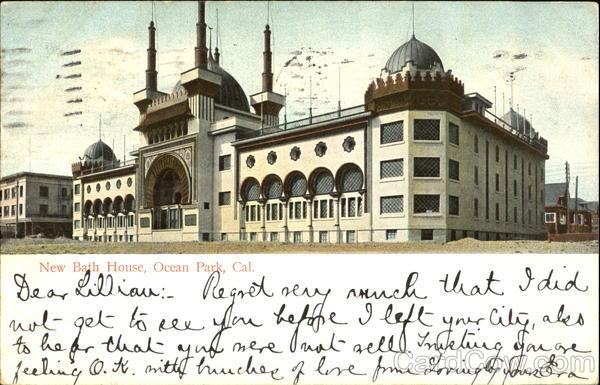 New Bath House, Ocean Park, Cal.
Dear Lillian:- Regret very much that I did
not get to see you before I left your City, also
to hear that you were not well. Trusting you are
feeling O.K. with bunches of love from lovingly yours
CardCow.com